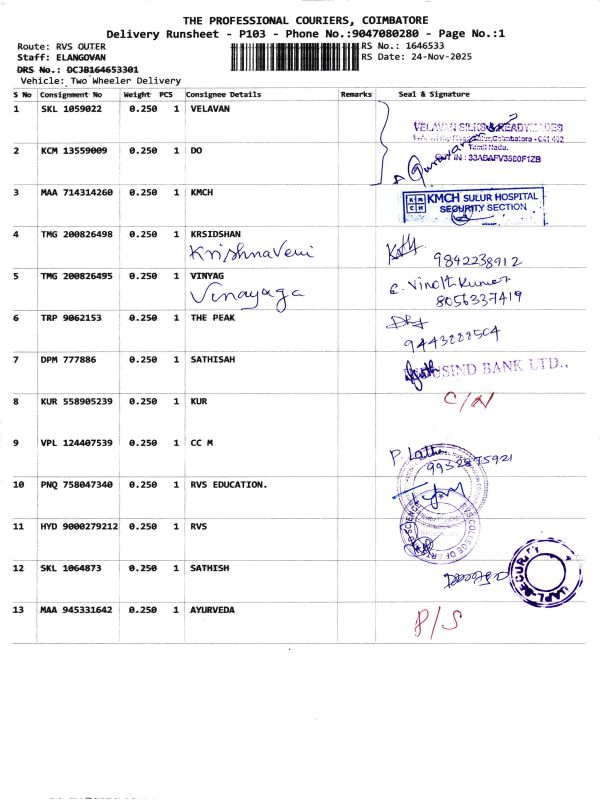 THE PROFESSIONAL COURIERS, COIMBATORE
Delivery Runsheet - P103 - Phone No.:9047080280 - Page No.:1
Route: RVS OUTER RS No.: 1646533
Staff: ELANGOVAN RS Date: 24-Nov-2025
DRS No.: DCJB164653301
Vehicle: Two Wheeler Delivery
S No Consignment No Weight PCS Consignee Details Remarks Seal & Signature
1 SKL 1059022 0.250 1 VELAVAN
VELAVAN SILKS & READYMADES
Coimbatore - 641 402
Tamil Nadu.
2 KCM 13559009 0.250 1 DO
3 MAA 714314260 0.250 1 KMCH
KMCH SULUR HOSPITAL
SECURITY SECTION
4 TMG 200826498 0.250 1 KRSIDSHAN
Krishnaveni
9842238912
5 TMG 200826495 0.250 1 VINYAG
Vinayaga
8056337419
6 TRP 9062153 0.250 1 THE PEAK
9443222504
7 DPM 777886 0.250 1 SATHISAH
USIND BANK LTD.,
8 KUR 558905239 0.250 1 KUR C/N
9 VPL 124407539 0.250 1 CC M
P. Latha
9932875921
10 PNQ 758047340 0.250 1 RVS EDUCATION.
11 HYD 9000279212 0.250 1 RVS
RVS COLLEGE OF ARTS & SCIENCE
12 SKL 1064873 0.250 1 SATHISH
13 MAA 945331642 0.250 1 AYURVEDA P/S